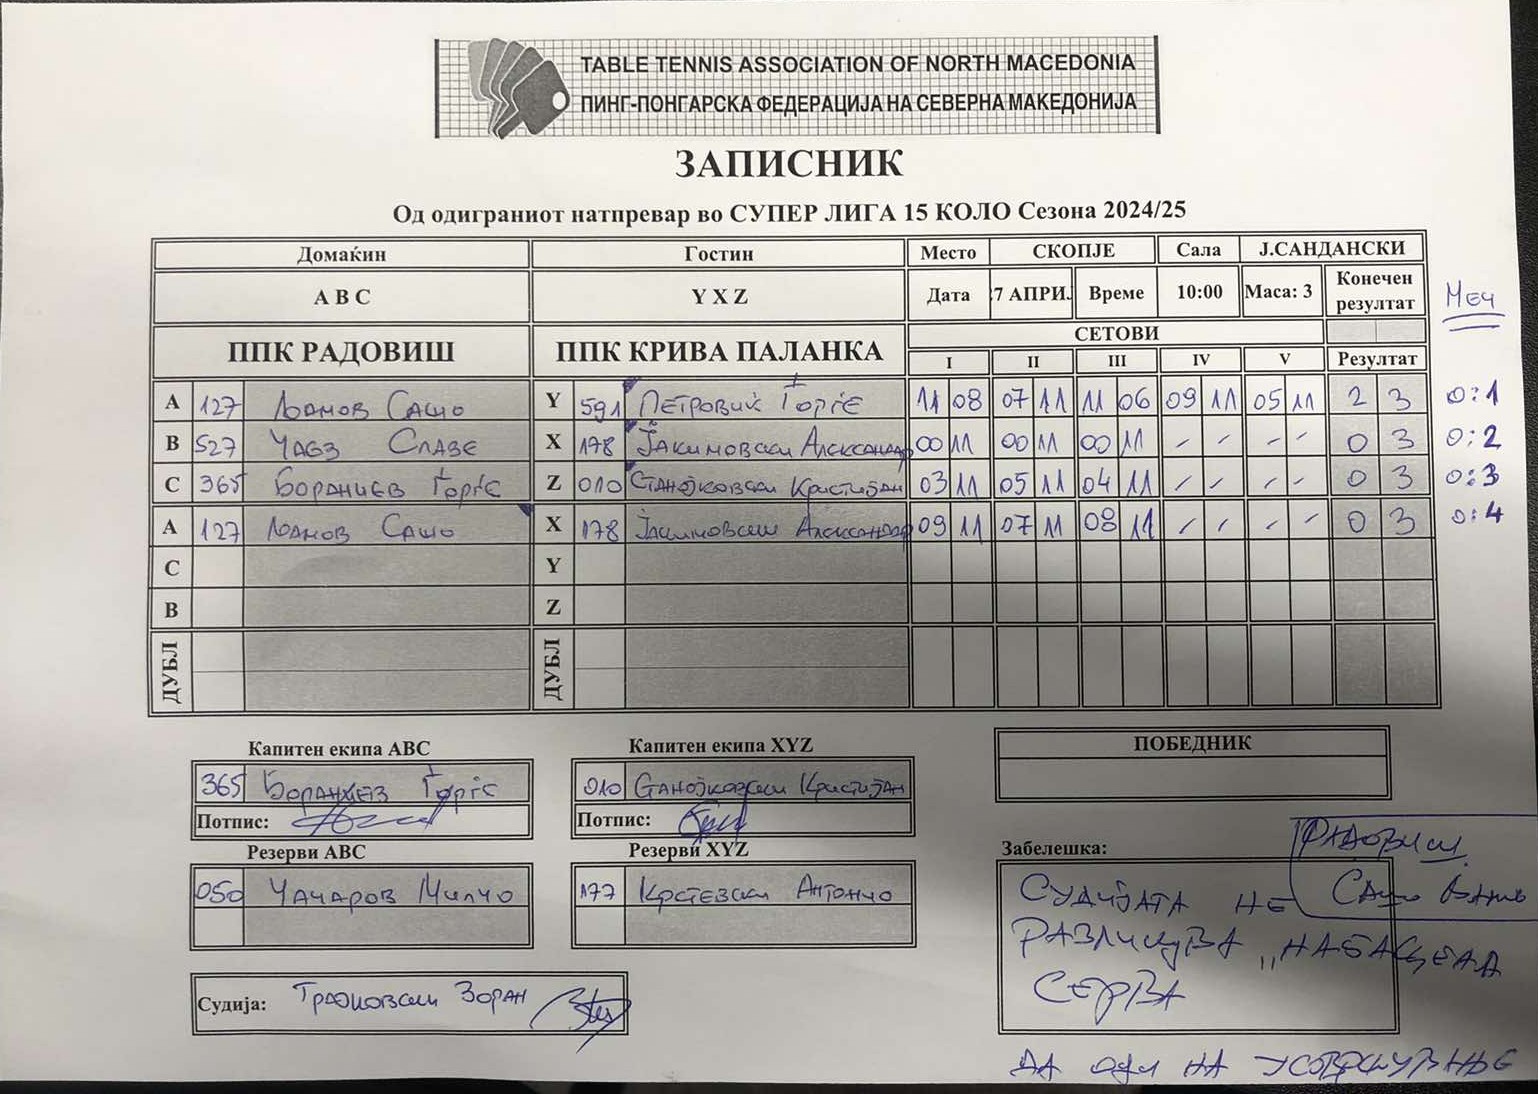 TABLE TENNIS ASSOCIATION OF NORTH MACEDONIA
ПИНГ-ПОНГАРСКА ФЕДЕРАЦИЈА НА СЕВЕРНА МАКЕДОНИЈА
ЗАПИСНИК
Од одиграниот натпревар во СУПЕР ЛИГА 15 КОЛО Сезона 2024/25
Домаќин Гостин Место СКОПЈЕ Сала Ј.САНДАНСКИ
A B C Y X Z Дата 7 АПРИ Време 10:00 Маса: 3 Конечен резултат
Меч
ППК РАДОВИШ ППК КРИВА ПАЛАНКА СЕТОВИ
I II III IV V Резултат
A 127 Сашо Y 591 Петровиќ Ѓорѓе 11 08 07 11 11 06 09 11 05 11 2 3 0:1
B 527 Чавз Славе X 178 Јакимовски Александар 00 11 00 11 00 11 - - - - 0 3 0:2
C 365 Ѓорѓе Z 010 Станојковски Кристијан 03 11 05 11 04 11 - - - - 0 3 0:3
A 127 Сашо X 178 Јакимовски Александар 09 11 07 11 08 11 - - - - 0 3 0:4
C Y
B Z
ДУБЛ ДУБЛ
Капитен екипа ABC Капитен екипа XYZ ПОБЕДНИК
365 Ѓорѓе 010 Станојковски Кристијан
Потпис: Потпис:
Резерви ABC Резерви XYZ Забелешка:
Радовиш
050 Чачаров Милчо 177 Крстевски Антончо
Судијата не Сашо
разликува „набацеад
серва
Судија: Трајковски Зоран
да оди на усовршување